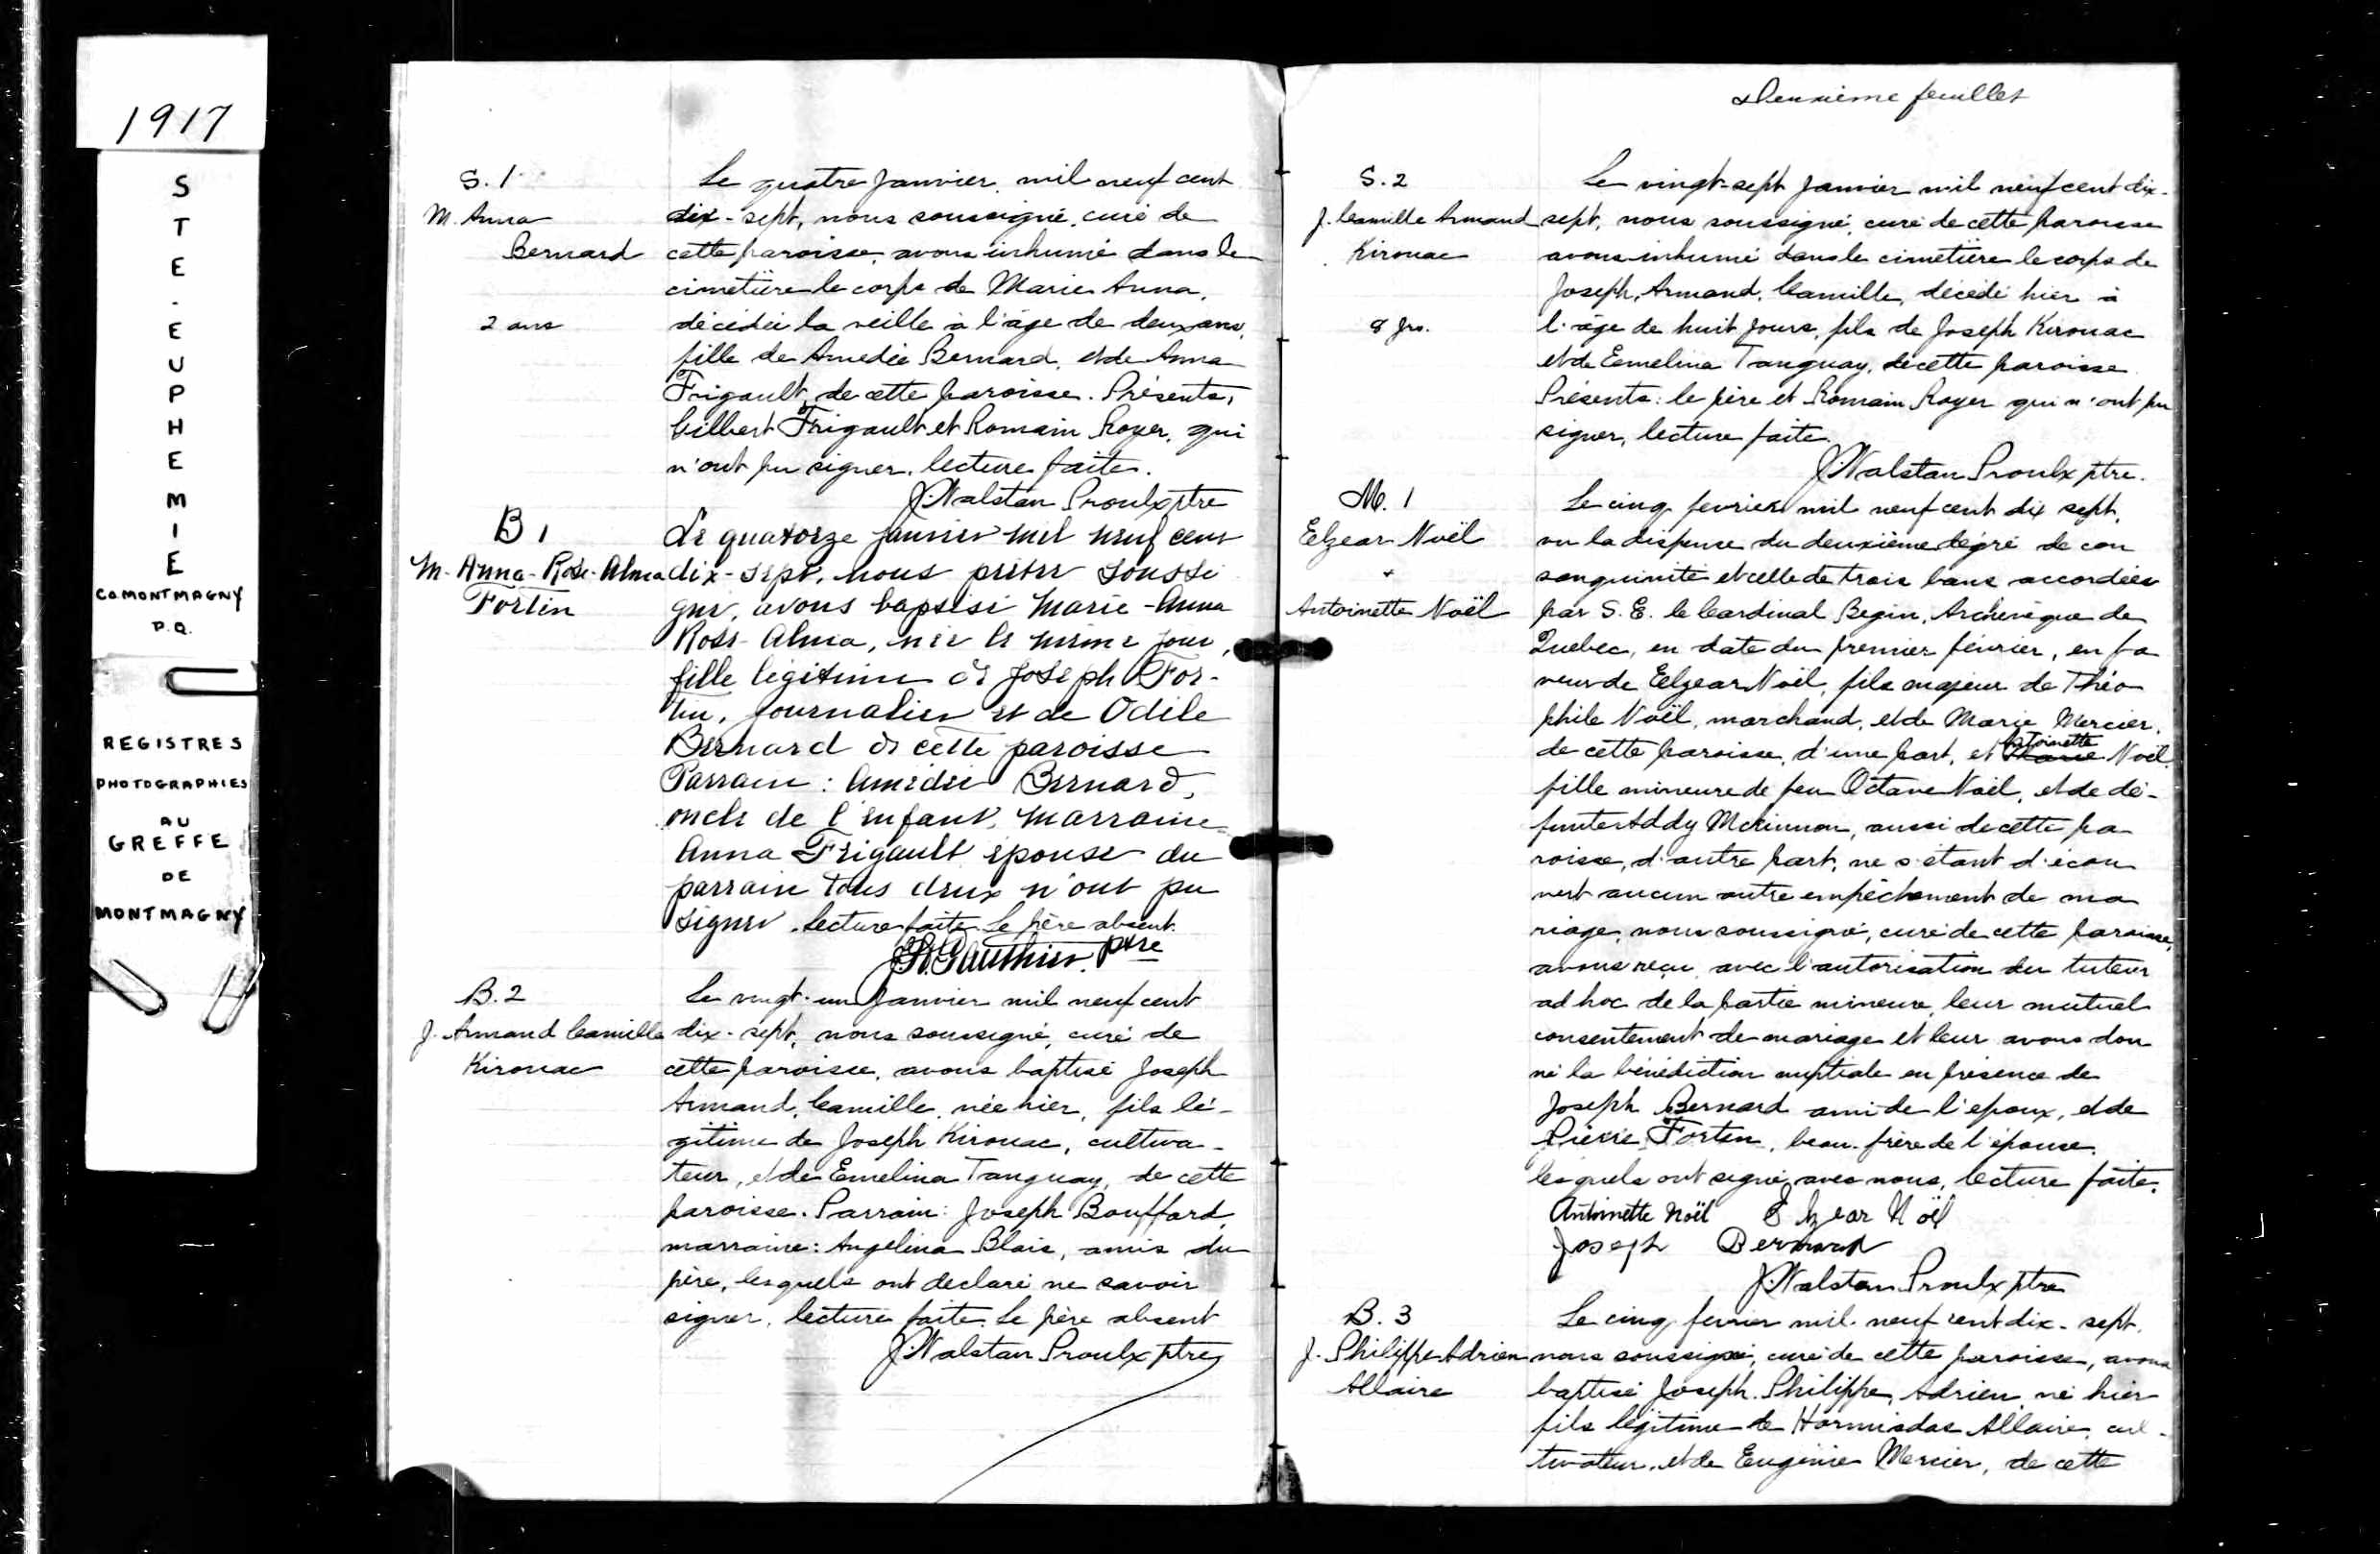 1917
S
T
E
.
E
U
P
H
E
M
I
E
Co MONTMAGNY
P.Q.
REGISTRES
PHOTOGRAPHIES
AU
GREFFE
DE
MONTMAGNY
S. 1
M. Anna
Bernard
2 ans
Le quatre Janvier mil neuf cent
dix-sept, nous soussigné, curé de
cette paroisse, avons inhumé dans le
cimetière le corps de Marie Anna,
décédée la veille à l'âge de deux ans,
fille de Amedée Bernard, et de Anna
Frigault, de cette paroisse. Présents,
Gilbert Frigault et Romain Royer, qui
n'ont pu signer, lecture faite.
J. Walstan Proulx ptre
B 1
M-Anna-Rose-Alma
Fortin
Le quatorze janvier mil neuf cent
dix-sept, nous prêtre soussi
gné, avons baptisé Marie-Anna
Rose-Alma, née le même jour,
fille légitime de Joseph For-
tin, journalier et de Odile
Bernard de cette paroisse
Parrain : Amédée Bernard,
oncle de l'enfant, marraine
Anna Frigault épouse du
parrain tous deux n'ont pu
signer. lecture faite. Le père absent.
Gauthier, ptre
B. 2
J. Armand Camille
Kirouac
Le vingt-un Janvier mil neuf cent
dix-sept, nous soussigné, curé de
cette paroisse, avons baptisé Joseph
Armand, Camille, née hier, fils lé-
gitime de Joseph Kirouac, cultiva-
teur, et de Emelina Tanguay, de cette
paroisse. Parrain : Joseph Bouffard,
marraine : Angelina Blais, amis du
père, lesquels ont déclaré ne savoir
signer, lecture faite. Le père absent
J. Walstan Proulx ptre
Deuxième feuillet
S. 2
J. Camille Armand
Kirouac
8 jrs.
Le vingt-sept Janvier mil neuf cent dix-
sept, nous soussigné, curé de cette paroisse
avons inhumé dans le cimetière le corps de
Joseph, Armand, Camille, décédé hier à
l'âge de huit jours, fils de Joseph Kirouac
et de Emelina Tanguay, de cette paroisse.
Présents : le père et Romain Royer qui n'ont pu
signer, lecture faite.
J. Walstan Proulx ptre.
M. 1
Elzear Noël
+
Antoinette Noël
Le cinq fevrier mil neuf cent dix sept,
vu la dispense du deuxième degré de con
sanguinité et celle de trois bans accordées
par S. E. le Cardinal Begin, Archevêque de
Quebec, en date du premier février, en fa
veur de Elzear Noël, fils majeur de Théo
phile Noël, marchand, et de Marie Mercier,
de cette paroisse, d'une part, et Antoinette Noël,
fille mineure de feu Octave Noël, et de dé-
funte Addy McKinnon, aussi de cette pa
roisse, d'autre part, ne s'étant décou
vert aucun autre empêchement de ma
riage, nous soussigné, curé de cette paroisse,
avons reçu, avec l'autorisation du tuteur
ad hoc de la partie mineure, leur mutuel
consentement de mariage et leur avons don
né la bénédiction nuptiale en présence de
Joseph Bernard ami de l'époux, et de
Pierre Fortin, beau-frère de l'épouse,
lesquels ont signé avec nous, lecture faite.
Antoinette Noël Elzear Noël
Joseph Bernard
J. Walstan Proulx ptre
B. 3
J. Philippe Adrien
Allaire
Le cinq fevrier mil neuf cent dix-sept,
nous soussigné, curé de cette paroisse, avons
baptisé Joseph, Philippe, Adrien, né hier
fils légitime de Hormisdas Allaire, cul-
tivateur, et de Eugénie Mercier, de cette